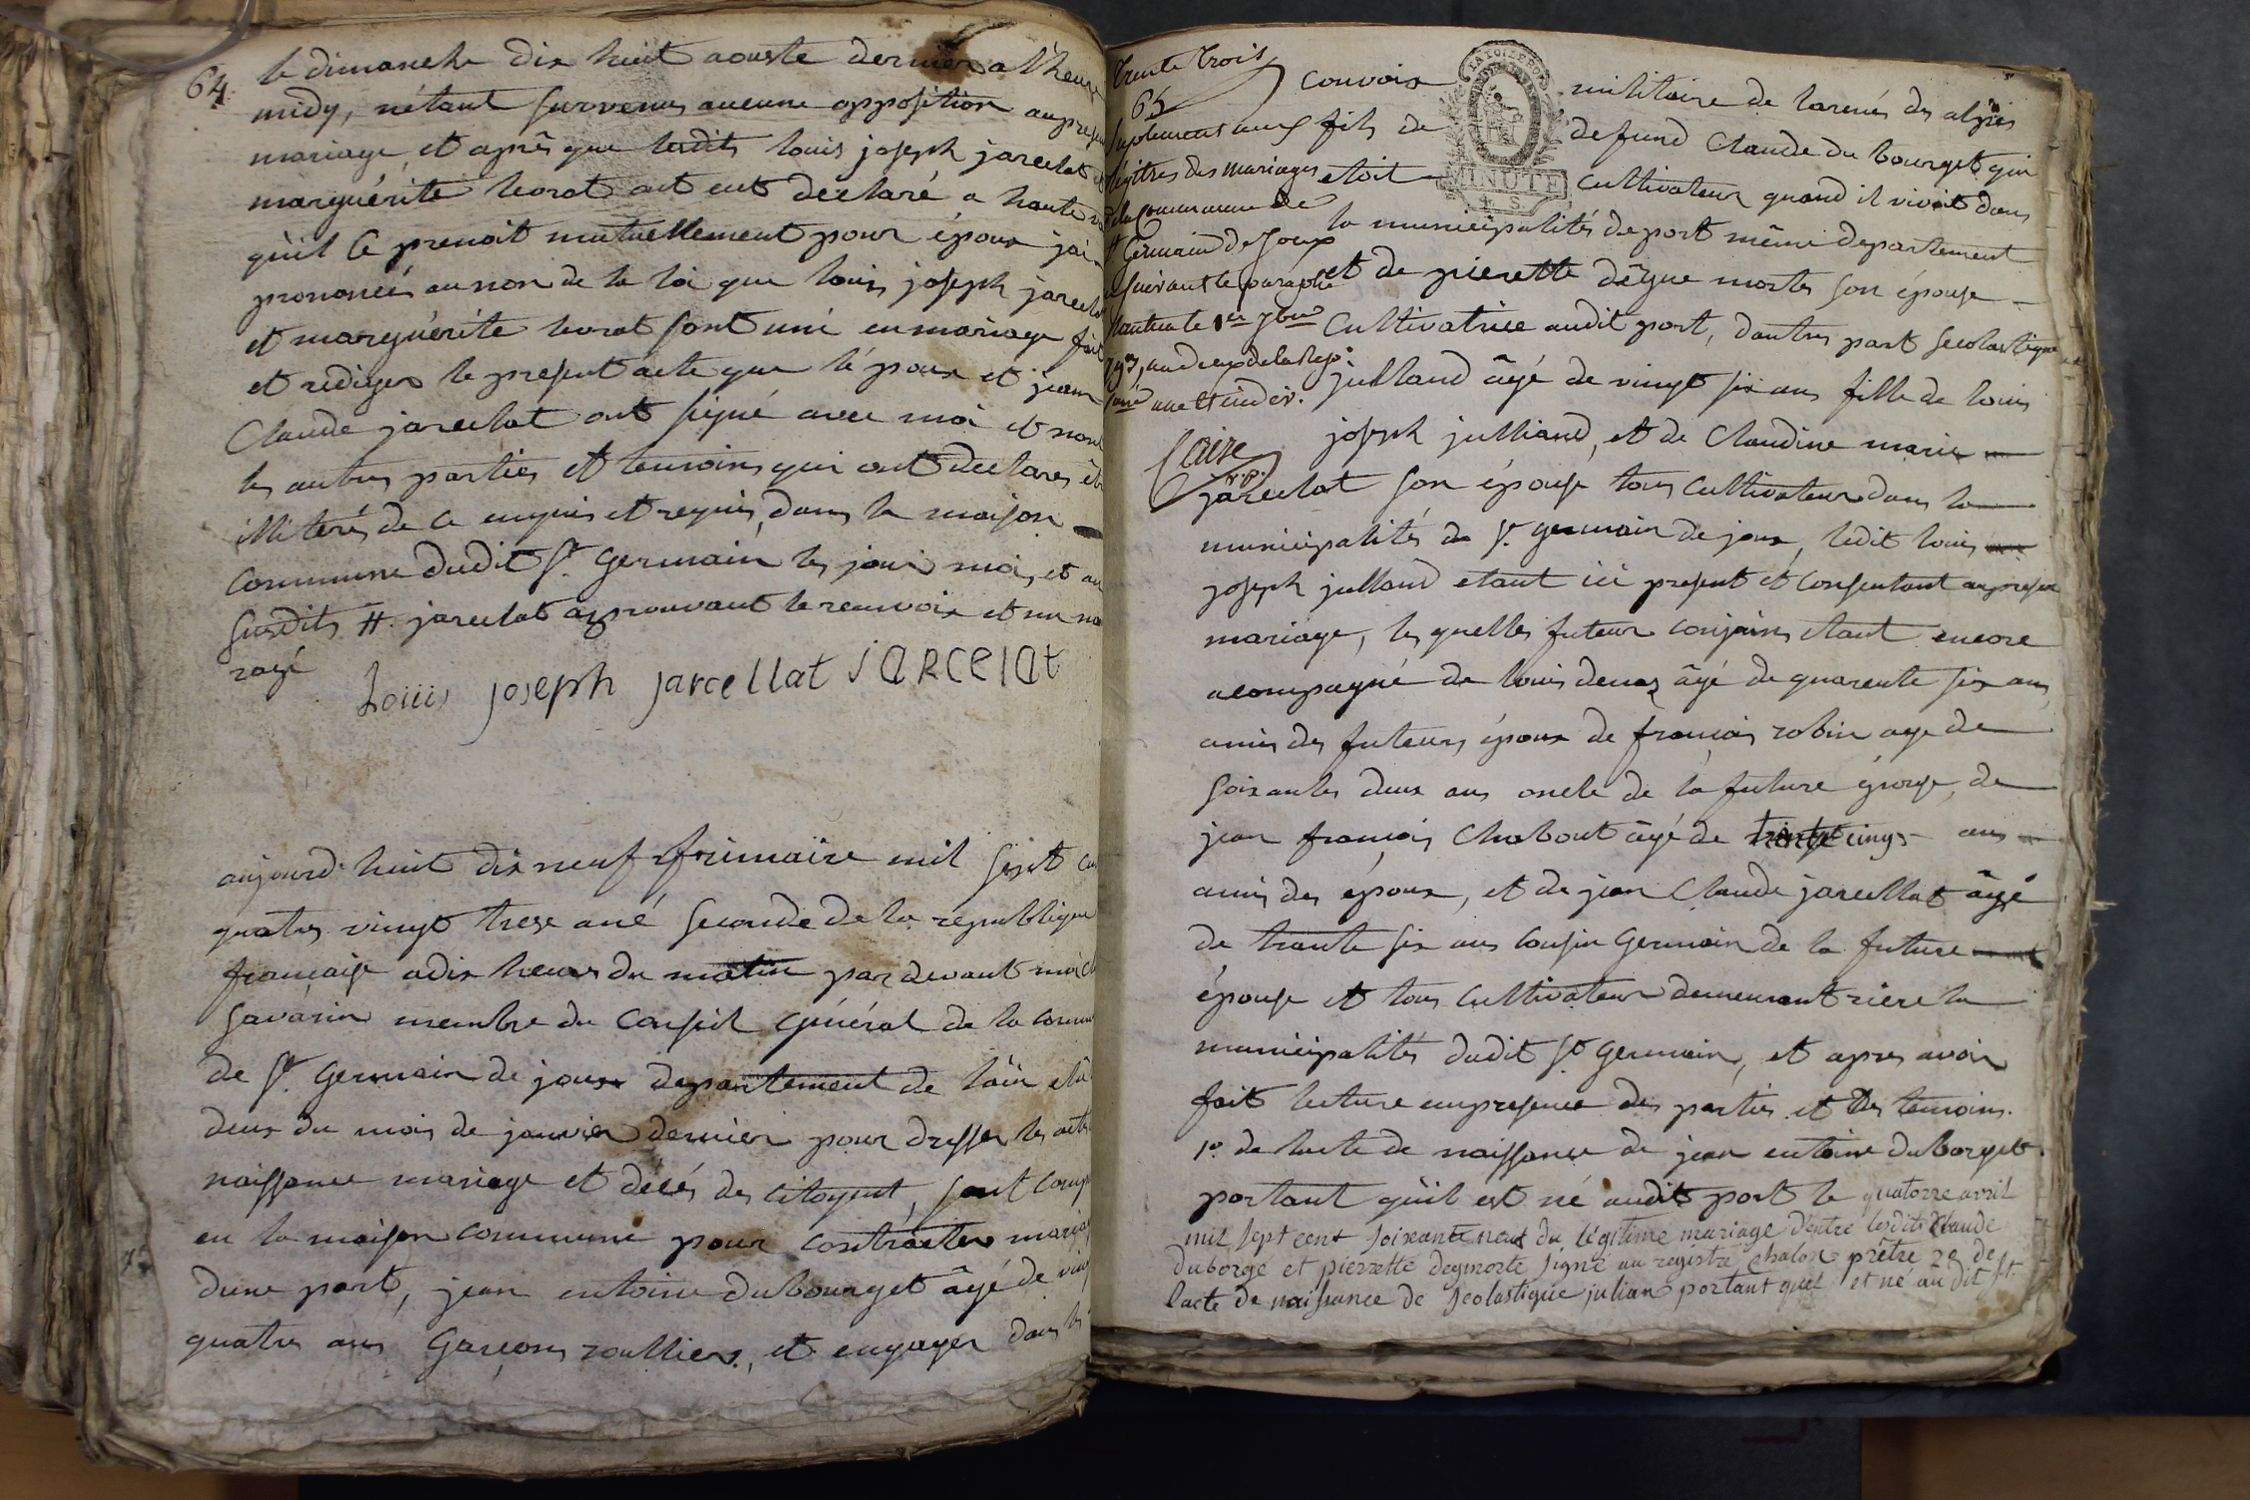 64
le dimanche dix huit aouste dernier a l'heure
midy, nétant survenus aucune opposition au present
mariage, et aprês que lesdits louis joseph jarcelat et
marguérite borat ont eut declaré a haute
quil ce prenoit mutuellement pour époux jai
prononcés au non de la loi que louis joseph jarcelat
et marguérite borat sont uni en mariage fait
et rediger le present acte que lé poux et jean
Claude jarcelat ont signé avec moi et non
les autres parties et temoins qui ont declares être
illiterés de ce enquis et requis, dans la maison
commune dudit St. Germain les jour mois et an
susdits #. jarcelat approuvant le renvoix et un mot
rayé
Louis joseph jarcellat JARCElAt
aujourd'huit dix neuf frimaire mil sept cent
quatres vingt treze ané seconde de la republique
francaise a dix heures du matin par devant moi
savarin membre du conseil général de la commune
de St. Germain de joux departement de lain elu
deux du mois de janvier dernier pour dresser les actes
naissance mariage et décés des citoyent, sont comparus
en la maison commune pour contracter mariage
dune part, jean entoine dubourget âgé de vingt
quatres ans Garcons roulliers, et engager dans les
trente trois
65
suplement aux
régitres des mariages
de la Commune de
St Germain de Joux
suivant le paraphe
1er 7bre
1793, an deux de la Repe.
une et indiv.
convoix militaire de larmés des alpes
fils de defund Claude du bourget qui
etoit cultivateur quand il vivoit dans
la municipalités de port même departement
et de pierette dêgue mortes son épouse
Cultivatrice audit port, dautres part Secolastique
julland âgé de vingt six ans fille de louis
joseph julliand, et de Claudine marie
jarcelat son épouse tous cultivateur dans la
municipalités de St. germain de joux, ledit louis
joseph julland etant ici present et consentant au present
mariage, les quelles futeur conjoins etant encore
acompagné de louis âgé de quarente six ans
amis des futeurs époux de francois robin age de
soixantes deux ans oncle de la future épouse, de
jean francois Chabout âgé de cinq ans
amis des époux, et de jean Claude jarcellat âgé
de trante six ans cousin Germain de la future
épouse et tous cultivateur demeurant riere la
municipalités dudit St Germain, et apres avoir
fait lecture en presence des parties et des temoins.
1o. de lacte de naissance de jean entoine duborget
portant quil est né audit port le quatorze avril
mil sept cent soixante neuf du légitime mariage d'entre lesdits Claude
duborge et pierrette degmorte signé au registre chalon prêtre 2o de
lacte de naissance de scolastique julian portant quel et né au dit st.